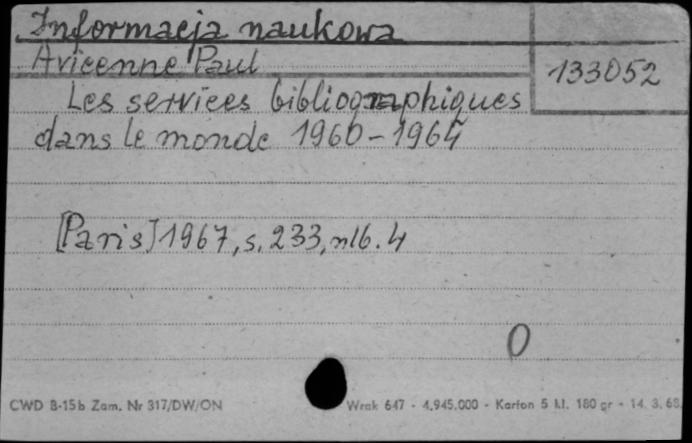 Informacja naukowa
Avicenne Paul
133052
Les services bibliographiques
dans le monde 1960-1964
[Paris] 1967, s. 233, nlb. 4
0
CWD B-15b Zam. Nr 317/DW/ON Wrak 647 - 4.945.000 - Karton 5 kl. 180 gr - 14. 3. 68.